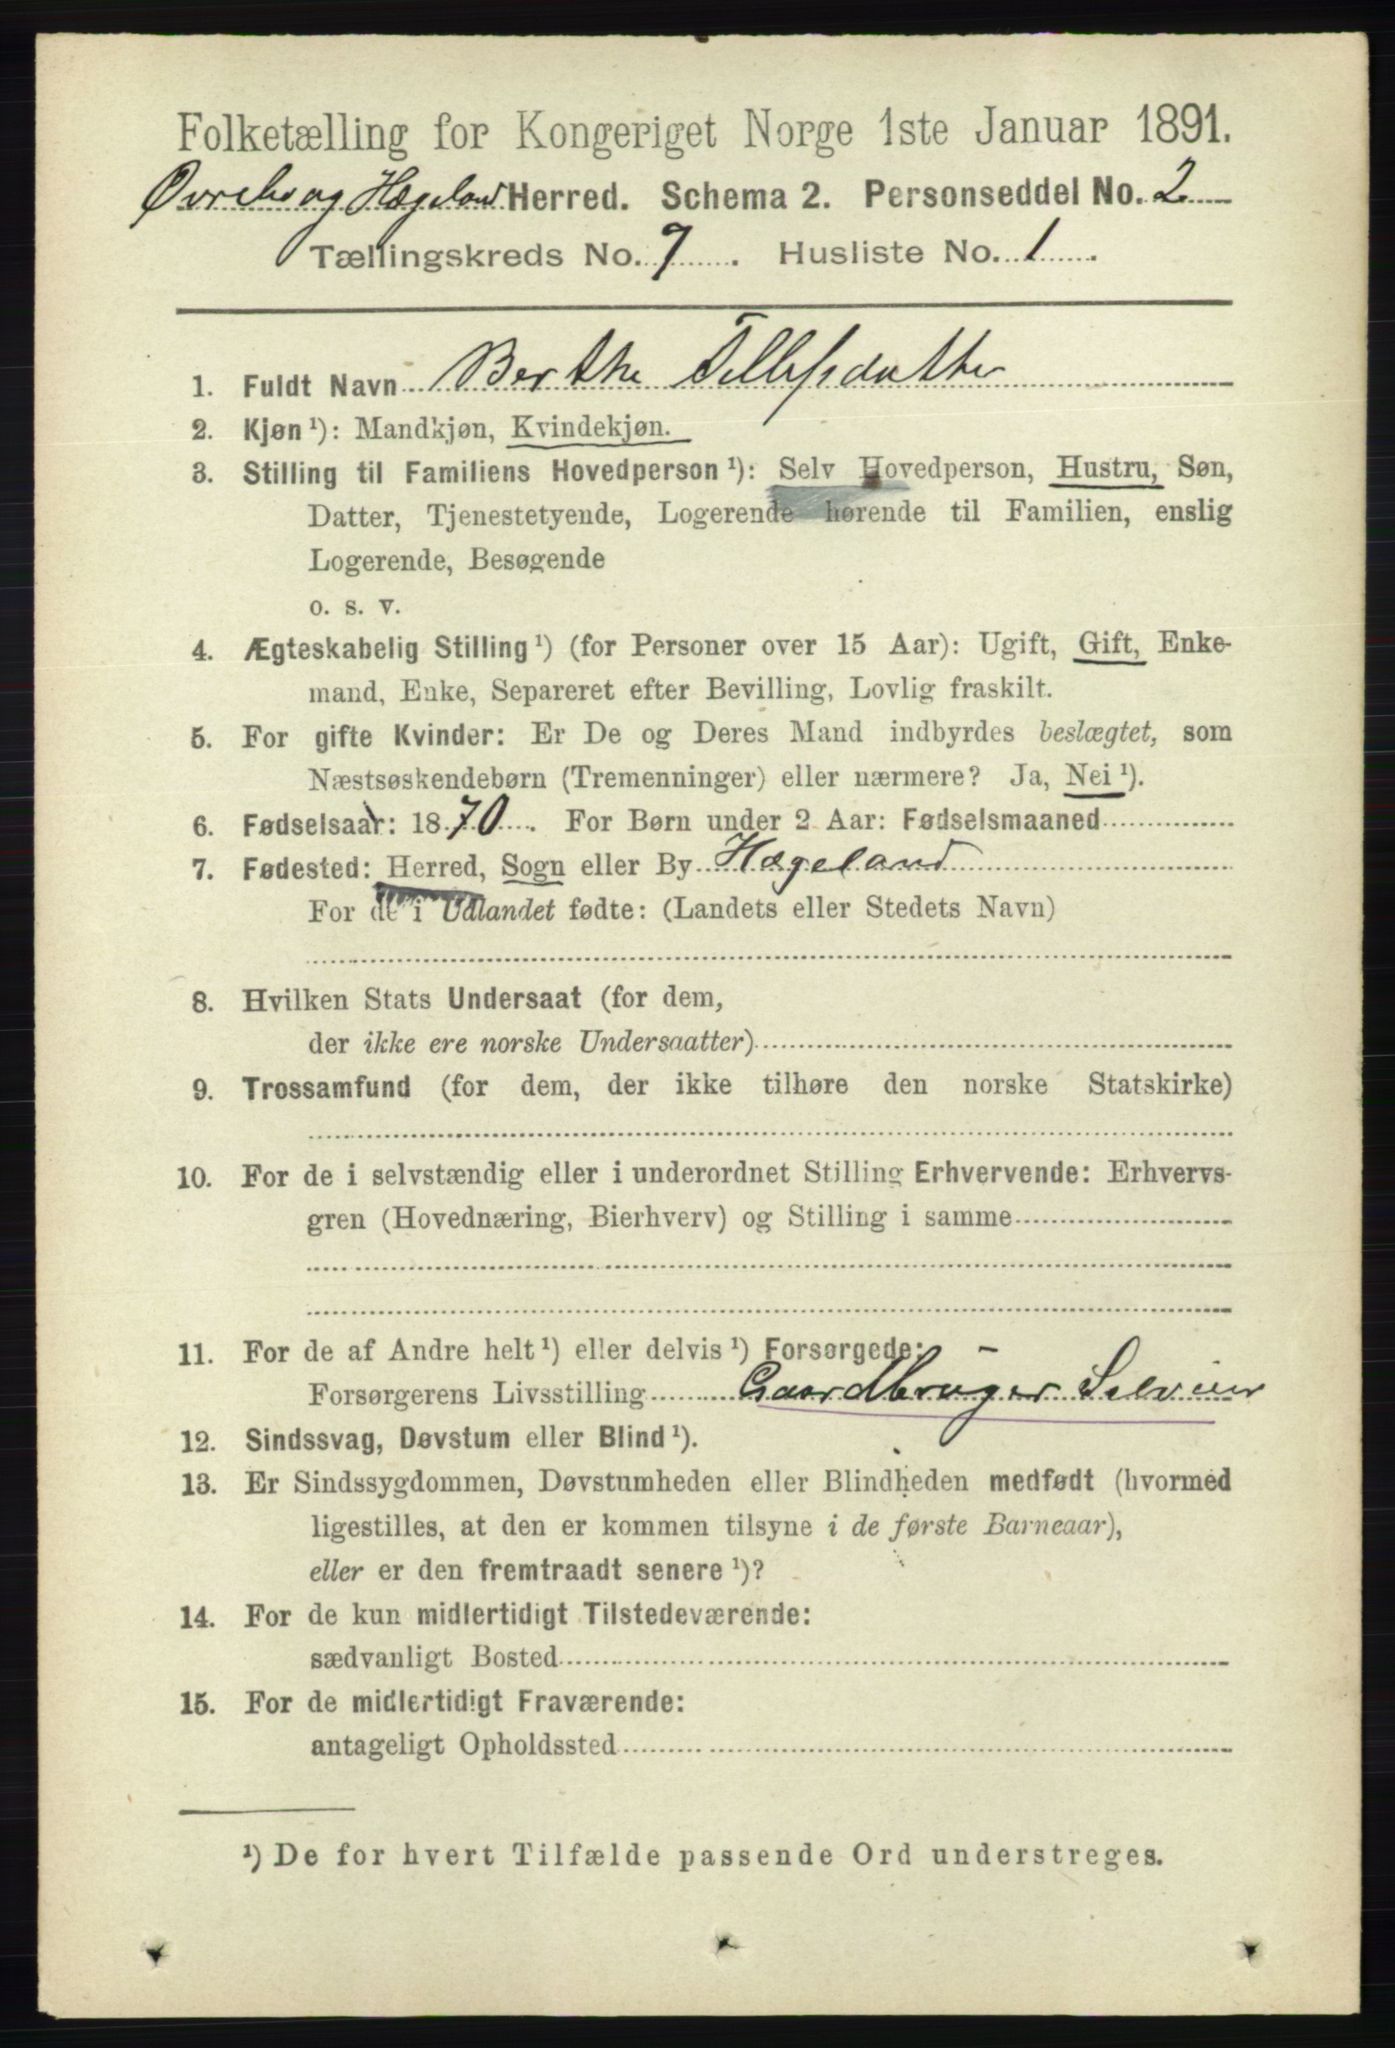 Folketælling for Kongeriget Norge 1ste Januar 1891.
Øvrebo og Hægeland Herred. Schema 2. Personseddel No. 2
Tællingskreds No. 7. Husliste No. 1.
1. Fuldt Navn Berthe Tellefsdatter
2. Kjøn ¹): Mandkjøn, Kvindekjøn.
3. Stilling til Familiens Hovedperson ¹): Selv Hovedperson, Hustru, Søn,
Datter, Tjenestetyende, Logerende hørende til Familien, enslig
Logerende, Besøgende
o. s. v.
4. Ægteskabelig Stilling ¹) (for Personer over 15 Aar): Ugift, Gift, Enke-
mand, Enke, Separeret efter Bevilling, Lovlig fraskilt.
5. For gifte Kvinder: Er De og Deres Mand indbyrdes beslægtet, som
Næstsøskendebørn (Tremenninger) eller nærmere? Ja, Nei ¹).
6. Fødselsaar: 1870. For Børn under 2 Aar: Fødselsmaaned
7. Fødested: Herred, Sogn eller By Hægeland
For de i Udlandet fødte: (Landets eller Stedets Navn)
8. Hvilken Stats Undersaat (for dem,
der ikke ere norske Undersaatter)
9. Trossamfund (for dem, der ikke tilhøre den norske Statskirke)
10. For de i selvstændig eller i underordnet Stilling Erhvervende: Erhvervs-
gren (Hovednæring, Bierhverv) og Stilling i samme
11. For de af Andre helt ¹) eller delvis ¹) Forsørgede:
Forsørgerens Livsstilling Gaardbruger Selveier
12. Sindssvag, Døvstum eller Blind ¹).
13. Er Sindssygdommen, Døvstumheden eller Blindheden medfødt (hvormed
ligestilles, at den er kommen tilsyne i de første Barneaar),
eller er den fremtraadt senere ¹)?
14. For de kun midlertidigt Tilstedeværende:
sædvanligt Bosted
15. For de midlertidigt Fraværende:
antageligt Opholdssted
¹) De for hvert Tilfælde passende Ord understreges.